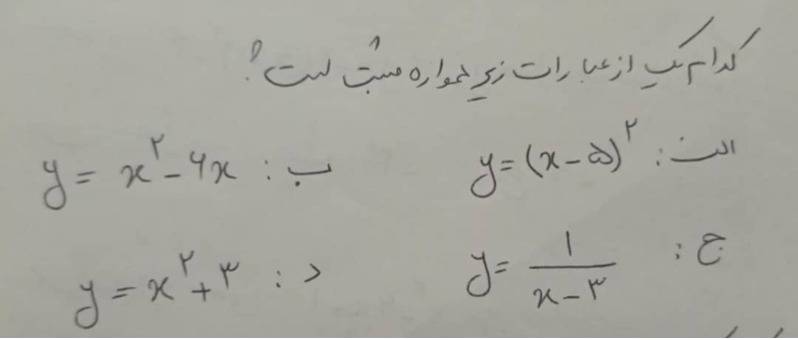 کدام یک از عبارات زیر همواره مثبت است؟
الف: y = (x - ۵)^۲ ب: y = x^۲ - ۶x
ج: y = ۱/(x - ۳) د: y = x^۲ + ۳